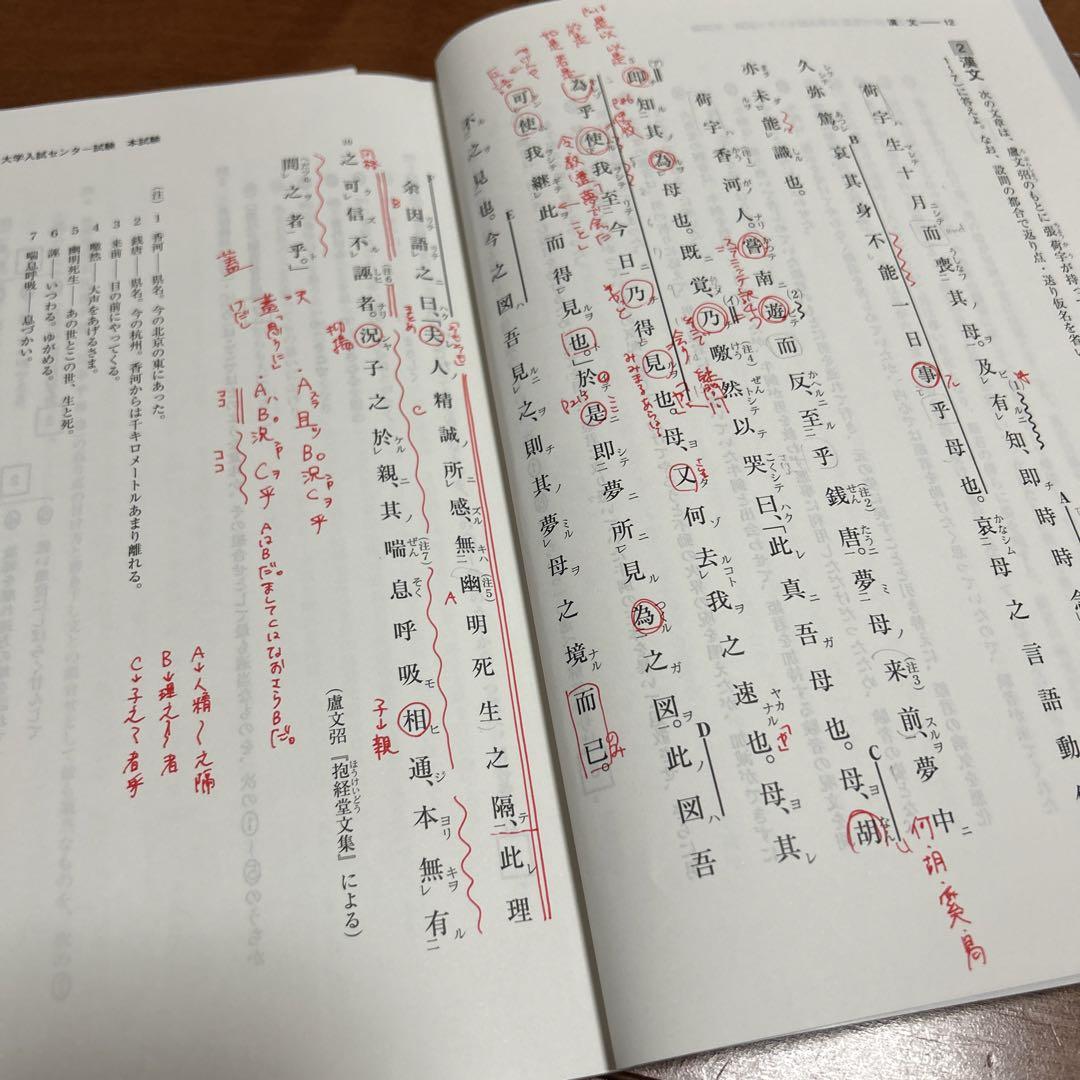 漢文—12
2 漢文 次の文章は、盧文弨のもとに張荷宇が持っ
1〜7)に答えよ。なお、設問の都合で返り点・送り仮名を
荷宇生十月而喪其母。及有知、即時時念
久弥篤。哀其身不能一日事乎母也。哀母之言語動
亦未能識也。
荷宇香河人。嘗南遊而反、至乎銭唐。夢母来前、夢中
即知其為母也。既覚、乃噭然以哭曰、「此真吾母也。母、胡
為乎使我至今日乃得見也。母、又何去我之速也。母、其
可使我継此而得見也。」於是即夢所見為之図。此図吾
不之見也。今之図吾見之、則其夢母之境而已。
余因語之曰、「夫人精誠所感、無幽明死生之隔、此理
之可信不誣者。況子之於親、其喘息呼吸相通、本無有
間之者乎。」
(盧文弨『抱経堂文集』による)
(注)1 香河——県名。今の北京の東にあった。
2 銭唐——県名。今の杭州。香河からは千キロメートルあまり離れる。
3 来前——目の前にやってくる。
4 噭然——大声をあげるさま。
5 幽明死生——あの世とこの世、生と死。
6 誣——いつわる。ゆがめる。
7 喘息呼吸——息づかい。
大学入試センター試験 本試験
何・胡・奚・曷
子→親
抑揚
A且B。況C乎
A B。況C乎
AはBだ。ましてCはなおさらBだ。
ココ
ココ
A→人精〜之隔
B→理之〜者
C→子之〜者乎